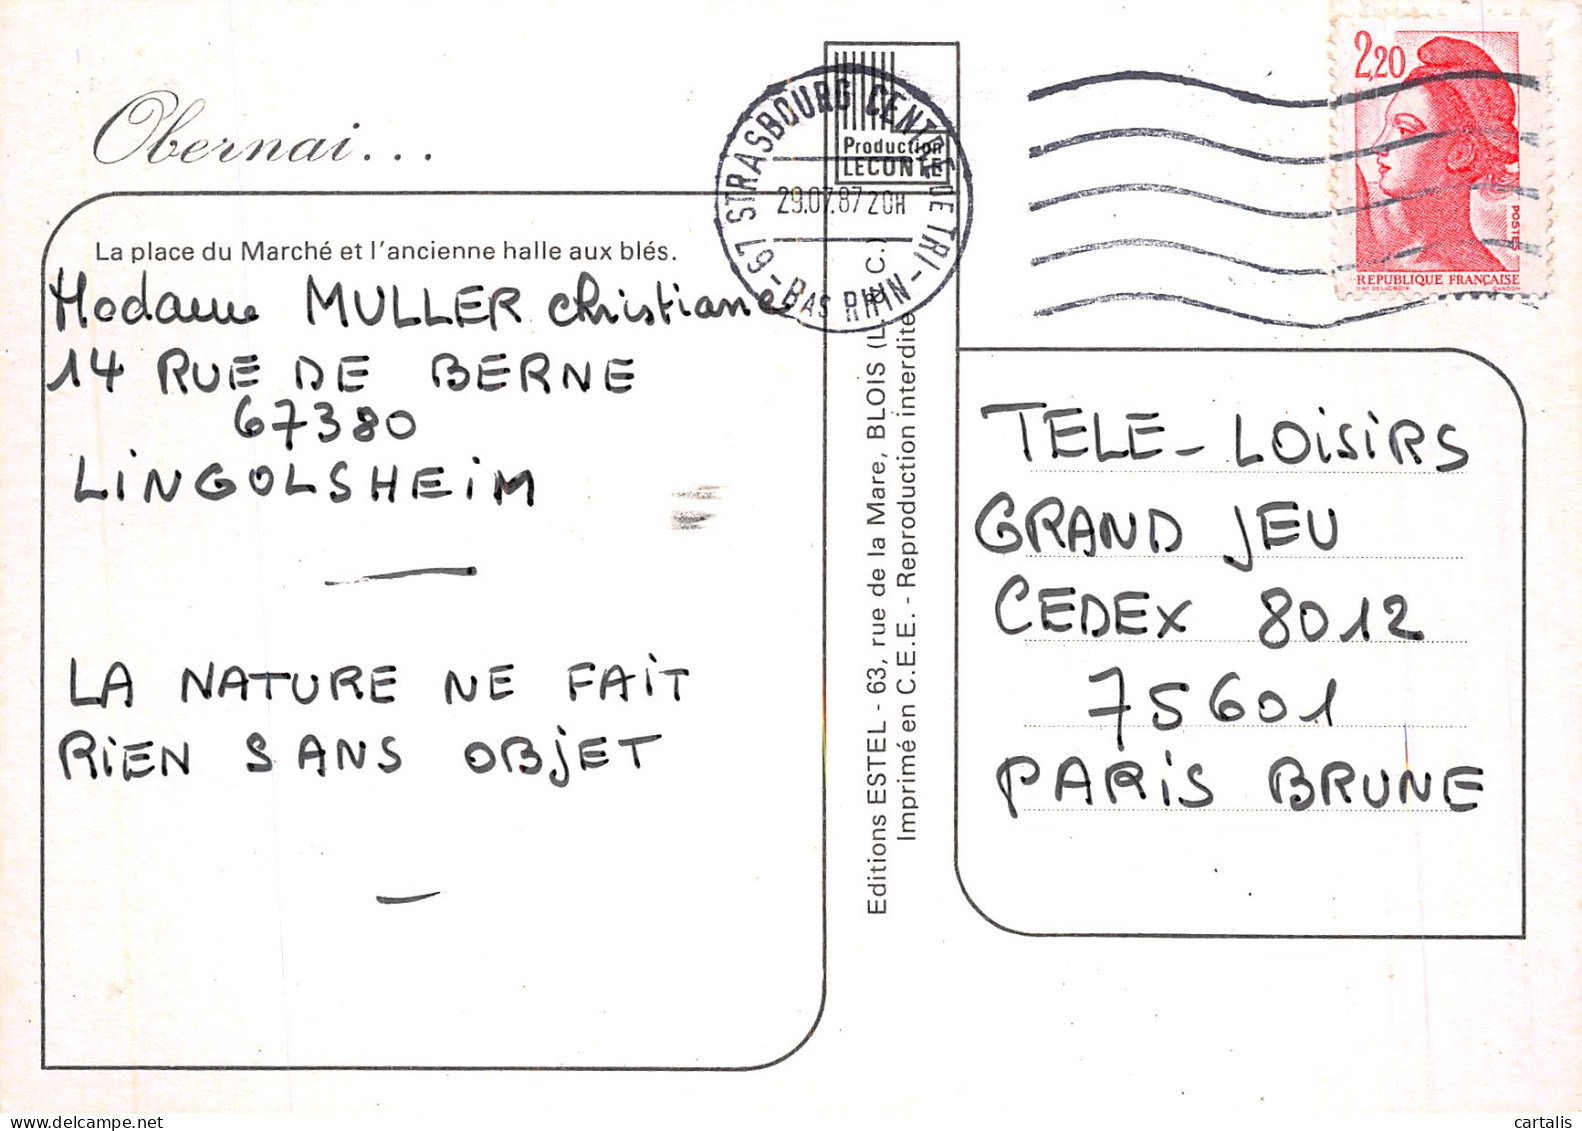 Obernai...
La place du Marché et l'ancienne halle aux blés.
Madame MULLER Christiane
14 RUE DE BERNE
67380
LINGOLSHEIM
LA NATURE NE FAIT
RIEN SANS OBJET
Production
LECONTE
67 STRASBOURG CENTRE DE TRI - BAS RHIN -
29.07.87 20H
Editions ESTEL - 63, rue de la Mare, BLOIS (L. & C.)
Imprimé en C.E.E. - Reproduction interdite
2,20
POSTES
REPUBLIQUE FRANÇAISE
D'AP. DELACROIX GANDON
TELE-LOISIRS
GRAND JEU
CEDEX 8012
75601
PARIS BRUNE
cartalis